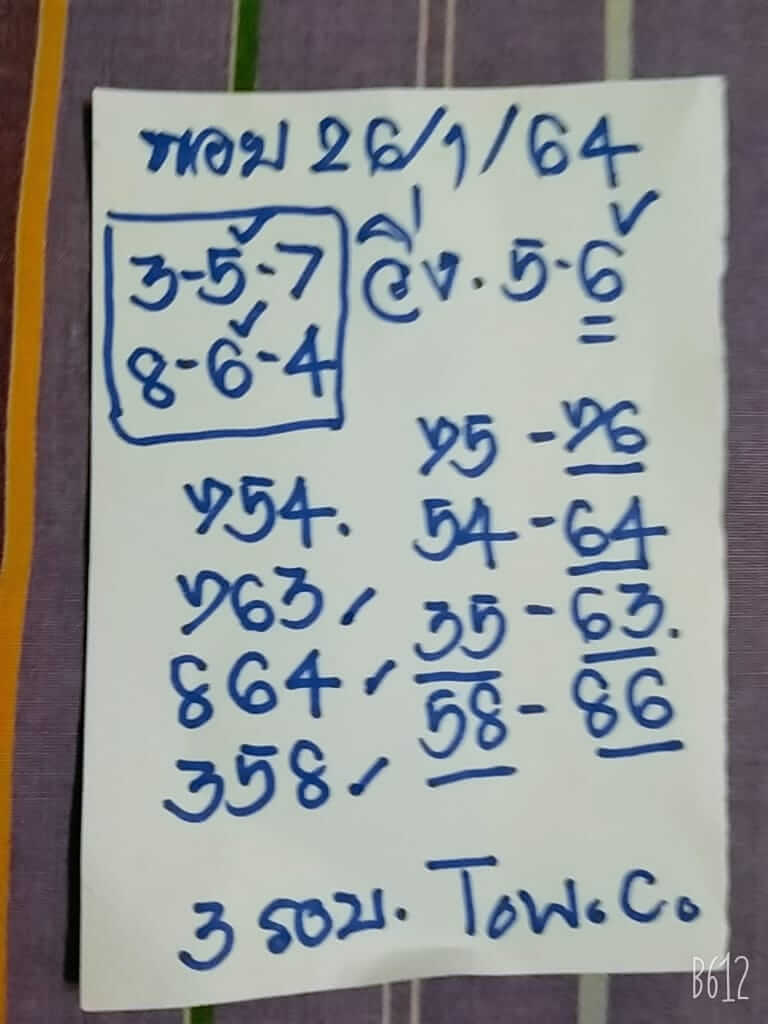 ฮานอย 26/1/64
3-5-7
8-6-4
วิ่ง. 5-6
75-76
754. 54-64
763/ 35-63.
864/ 58-86
358/
3 รอบ. To
B612